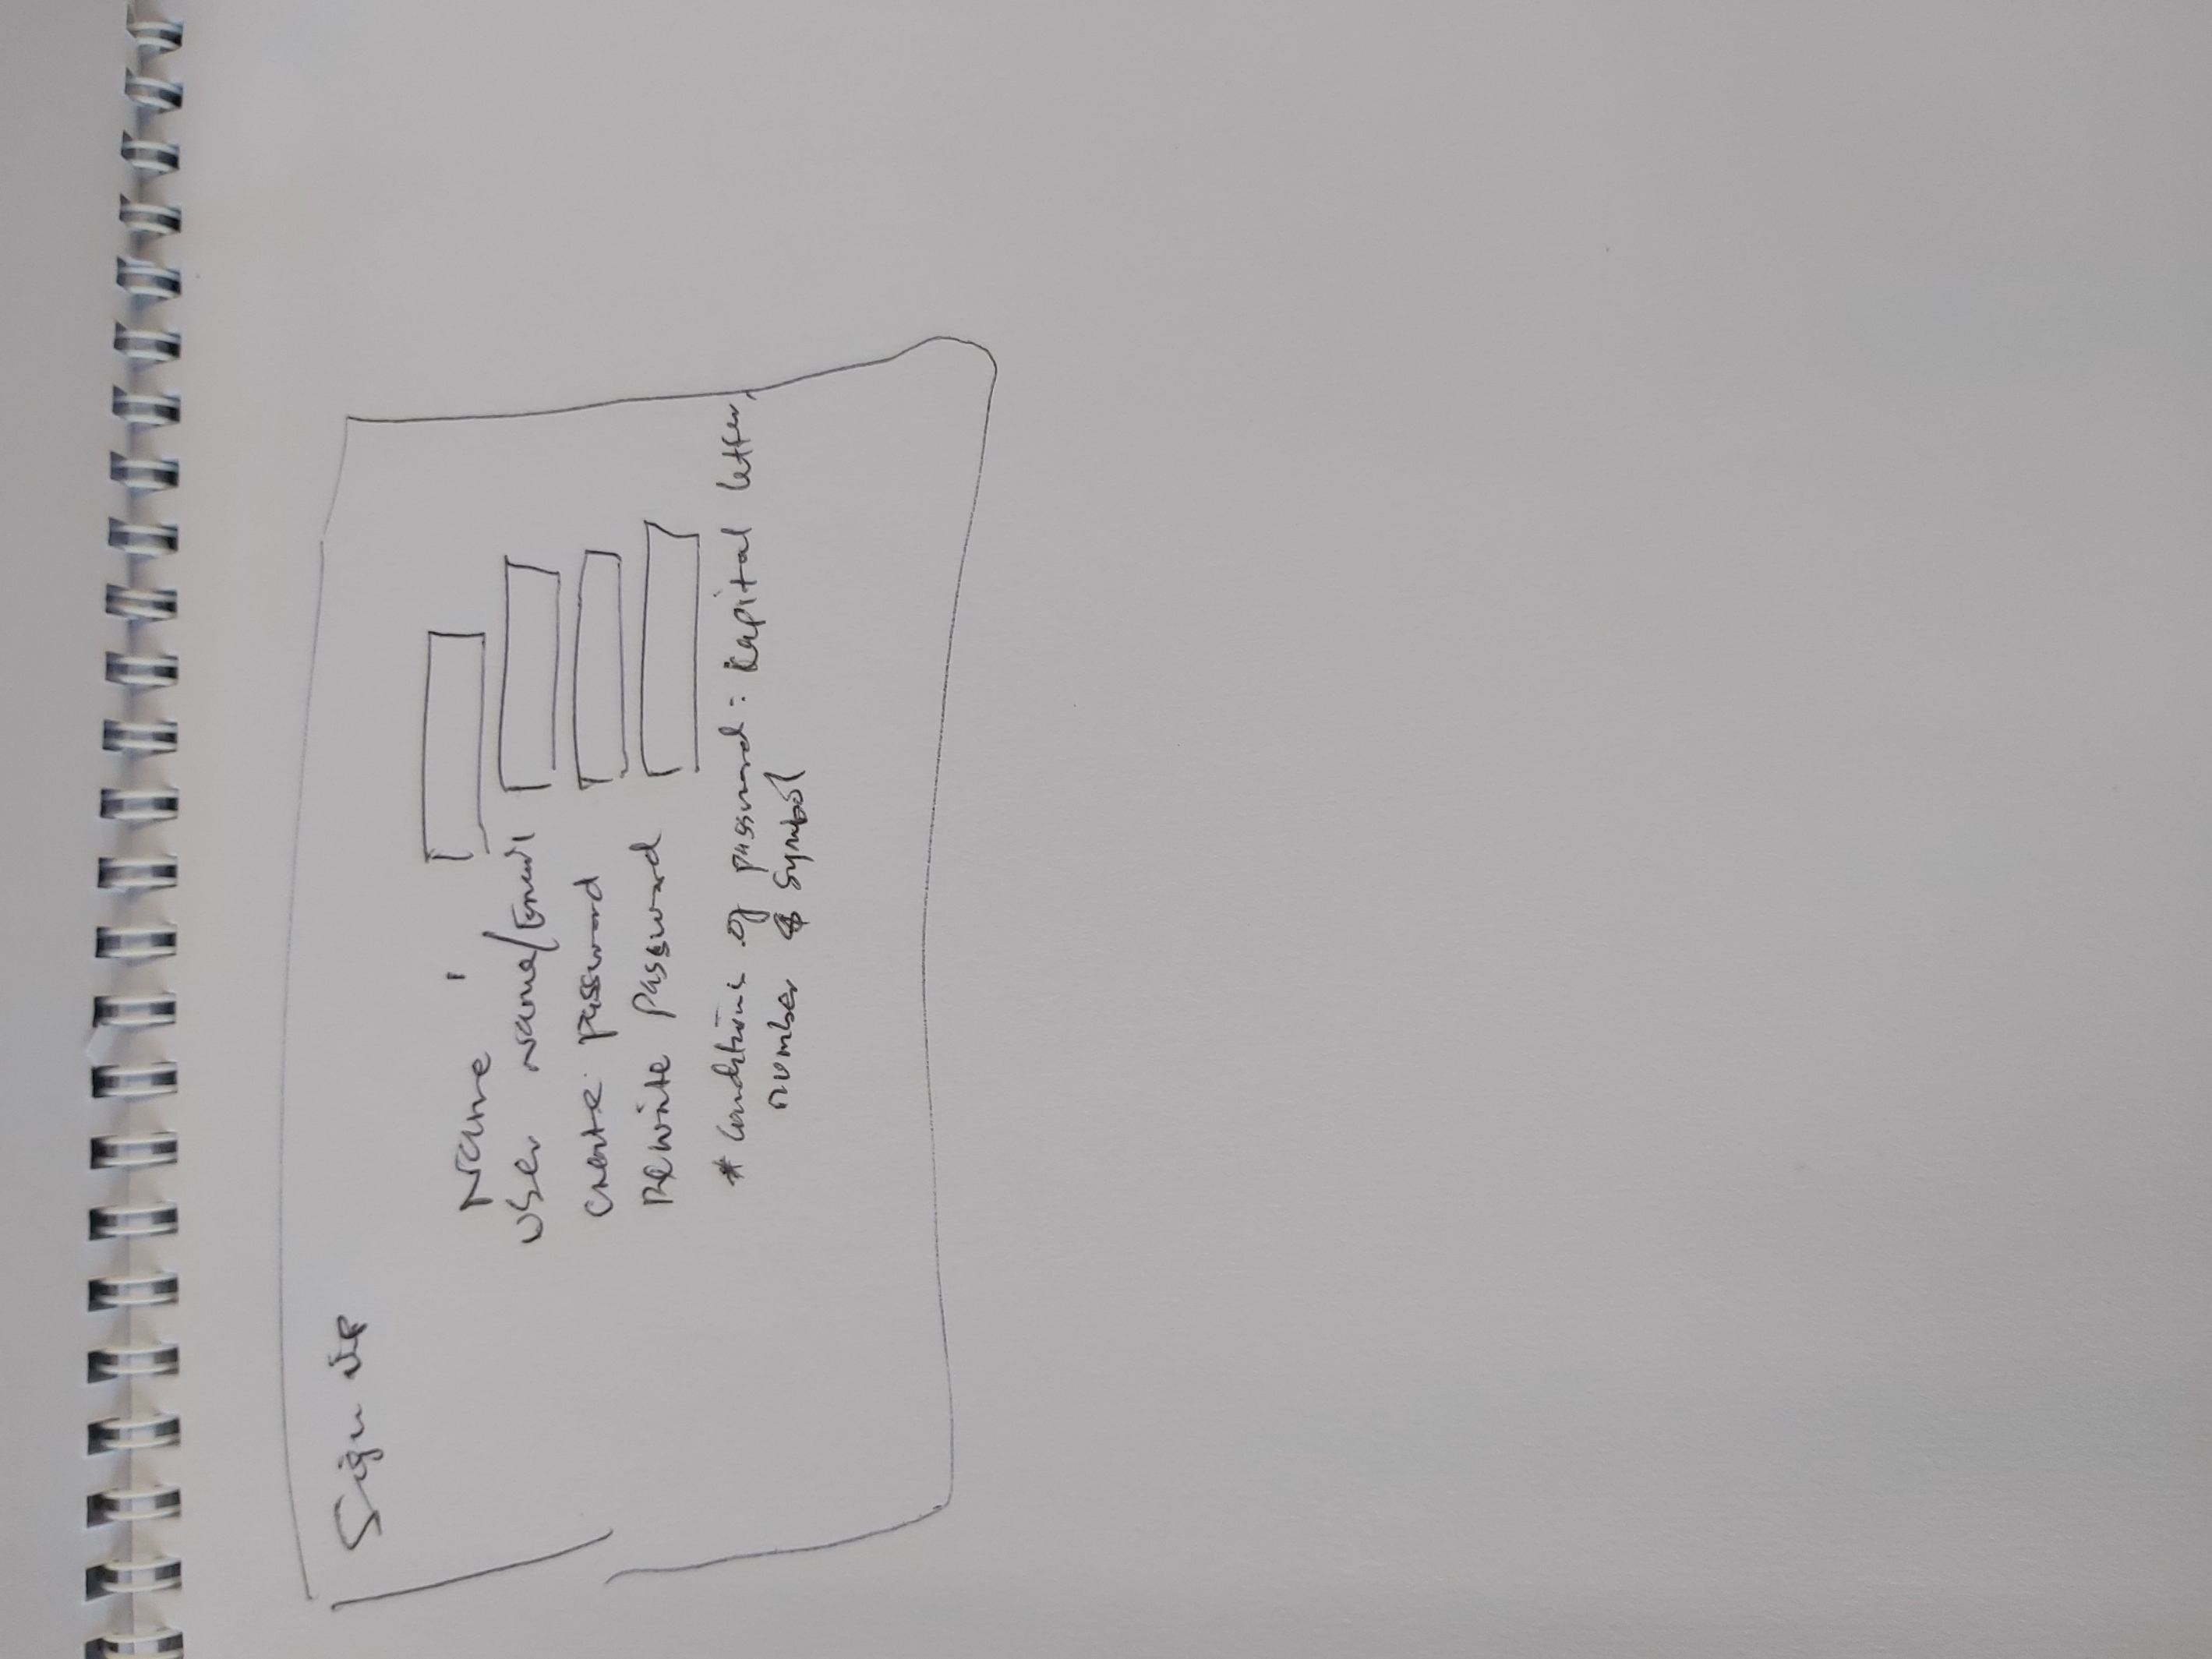 Sign up
Name :
User Name/Email
Create password
Rewrite Password
* Conditions of password: Capital letter,
number & symbol